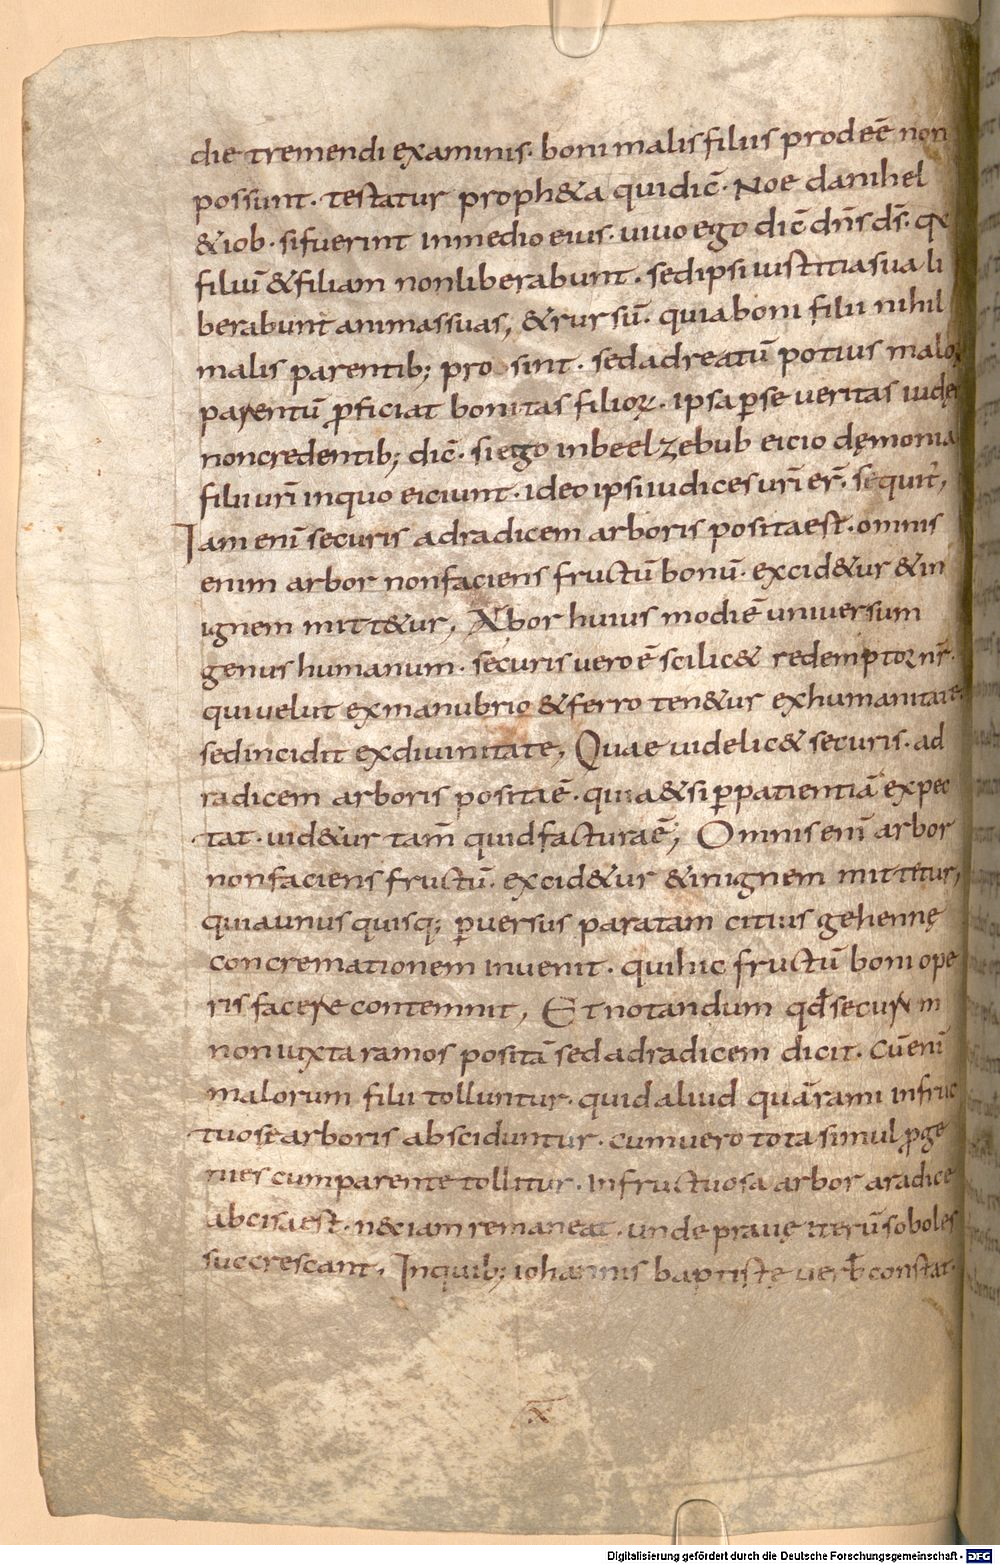 die tremendi examinis· boni malis filiis prodeē non
possunt· testatur proph&a qui dic̄· Noe danihel
& iob· si fuerint in medio eius· uiuo ego dic̄ dn̄s ds̄· qa
filiū & filiam non liberabunt· sed ipsi iustitia sua li
berabunt animas suas, & rursū· quia boni filii nihil
malis parentib; pro sint· sed ad reatū potius maloꝝ
parentū ꝓficiat bonitas filioꝝ· ipsa ꝑ se ueritas iudęis
non credentib; dic̄· si ego in beelzebub eicio dęmonia
filii ur̄i in quo eiciunt· ideo ipsi iudices ur̄i er̄· sequit̄,
Iam eni securis ad radicem arboris posita est· omnis
enim arbor non faciens fructū bonū· excid&ur & in
ignem mitt&ur, Arbor huius modi ē uniuersum
genus humanum· securis uero ē scilic& redemptor nr̄·
qui uelut ex manubrio & ferro ten&ur ex humanitate·
sed incidit ex diuinitate, Quae uidelic& securis· ad
radicem arboris posita ē· quia & si ꝑ patientiā expec
tat· uid&ur tam̄ quid factura ē; Omnis eni arbor
non faciens fructū· excid&ur & in ignem mittitur,
quia unus quisq; ꝑuersus paratam citius gehennę
concremationem inuenit· qui hic fructū boni ope
ris facere contemnit, Et notandum qđ securim
non iuxta ramos positā sed ad radicem dicit· Cū eni
malorum filii tolluntur· quid aliud quā rami infruc
tuosę arboris absciduntur· cum uero tota simul ꝓge
nies cum parente tollitur· infructuosa arbor a radice
abcisa est· ne & iam remaneat· unde prauę iterū soboles
succrescant, In quib; iohannis baptistę uerƀ constat·
X
Digitalisierung gefördert durch die Deutsche Forschungsgemeinschaft - DFG